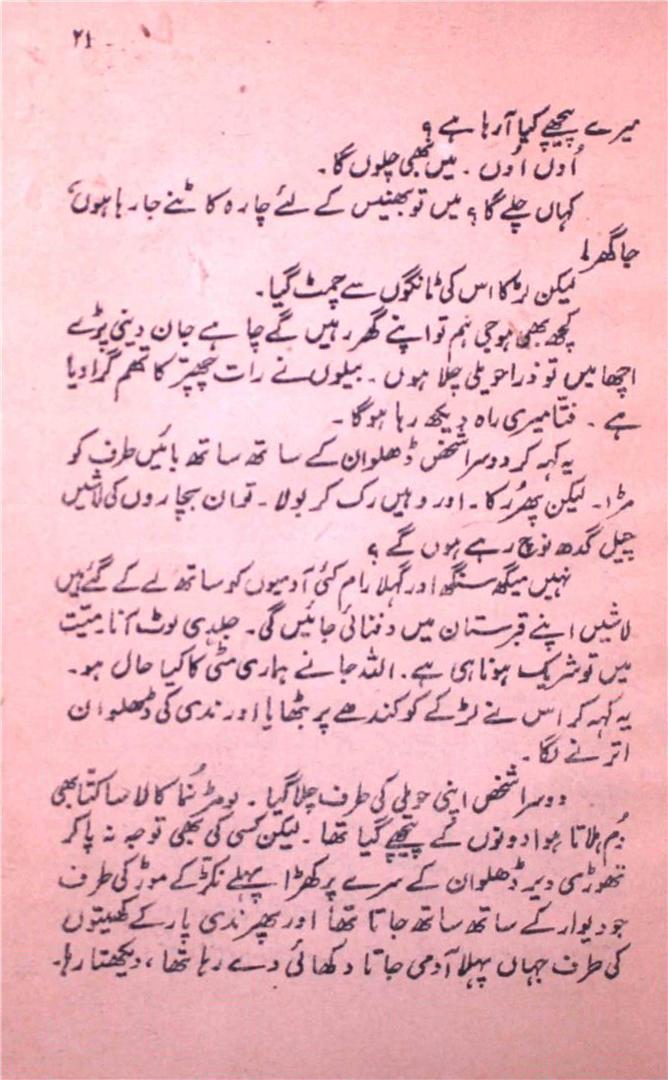 ۲۱
میرے پیچھے کیا آرہا ہے ؟
اُوں اُوں ۔ میں بھی چلوں گا ۔
کہاں چلے گا ؟ میں تو بھینس کے لئے چارہ کاٹنے جارہا ہوں
جا گھر !
لیکن لڑکا اس کی ٹانگوں سے چمٹ گیا ۔
کچھ بھی ہو جی ہم تو اپنے گھر رہیں گے چاہے جان دینی پڑے
اچھا میں تو ذرا حویلی چلا ہوں ۔ بیلوں نے رات چھپر کا تھم گرا دیا
ہے ۔ فتّا میری راہ دیکھ رہا ہوگا ۔
یہ کہہ کر دوسرا شخص ڈھلوان کے ساتھ ساتھ بائیں طرف کو
مڑا ۔ لیکن پھر رُکا ۔ اور وہیں رک کر بولا ۔ تو ان بچاروں کی لاشیں
چیل گدھ نوچ رہے ہوں گے ؟
نہیں میگھ سنگھ اور گہلا رام کئی آدمیوں کو ساتھ لے کے گئے ہیں
لاشیں اپنے قبرستان میں دفنائی جائیں گی ۔ جلدی لوٹ آنا میّت
میں تو شریک ہونا ہی ہے ۔ اللہ جانے ہماری مٹی کا کیا حال ہو ۔
یہ کہہ کر اس نے لڑکے کو کندھے پر بٹھایا اور ندی کی ڈھلوان
اترنے لگا ۔
دوسرا شخص اپنی حویلی کی طرف چلا گیا ۔ لومڑ نُما کالا سا کتّا بھی
دُم ہلاتا ہوا دونوں کے پیچھے گیا تھا ۔ لیکن کسی کی بھی توجہ نہ پا کر
تھوڑی دیر ڈھلوان کے سرے پر کھڑا پہلے نکڑ کے موڑ کی طرف
جو دیوار کے ساتھ ساتھ جاتا تھا اور پھر ندی پار کے کھیتوں
کی طرف جہاں پہلا آدمی جاتا دکھائی دے رہا تھا ، دیکھتا رہا ۔